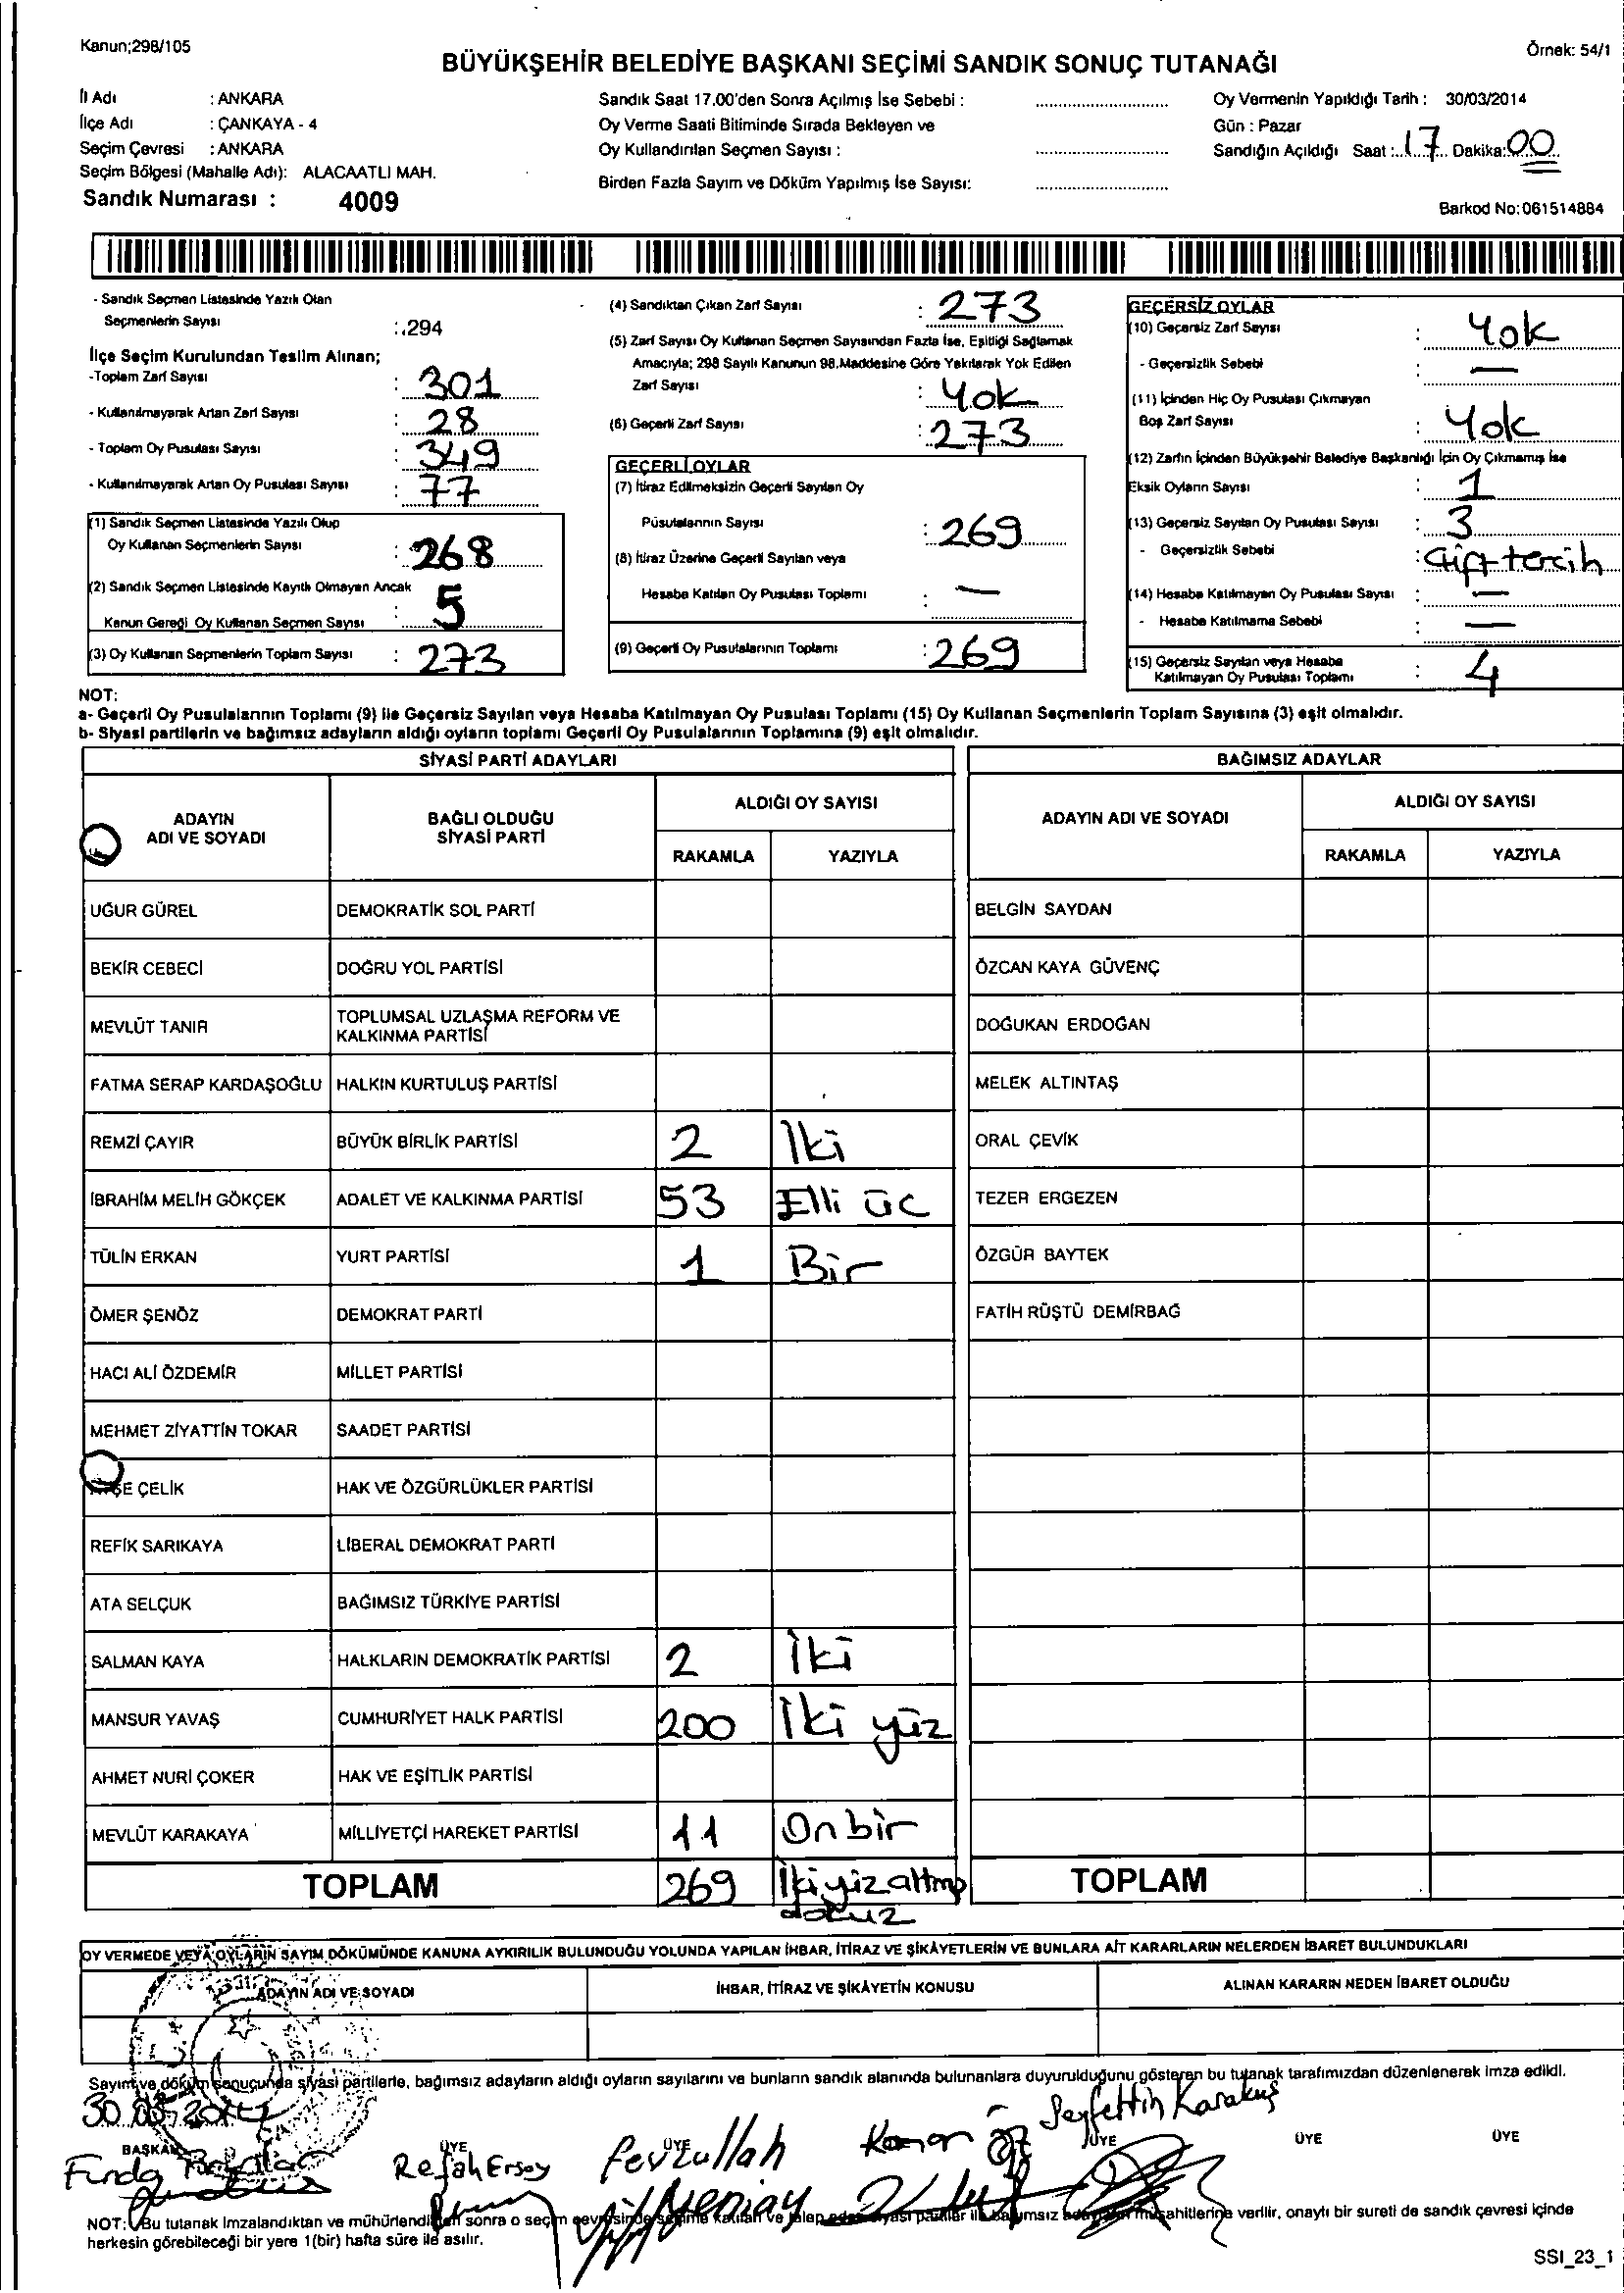 Kanun;298/105
Örnek: 54/1
BÜYÜKŞEHİR BELEDİYE BAŞKANI SEÇİMİ SANDIK SONUÇ TUTANAĞI
İl Adı : ANKARA
İlçe Adı : ÇANKAYA - 4
Seçim Çevresi : ANKARA
Seçim Bölgesi (Mahalle Adı): ALACAATLI MAH.
Sandık Numarası : 4009
Sandık Saat 17.00'den Sonra Açılmış İse Sebebi :
Oy Verme Saati Bitiminde Sırada Bekleyen ve
Oy Kullandırılan Seçmen Sayısı :
Birden Fazla Sayım ve Döküm Yapılmış İse Sayısı:
Oy Vermenin Yapıldığı Tarih : 30/03/2014
Gün : Pazar
Sandığın Açıldığı Saat : 17 Dakika: 00
Barkod No:061514884
- Sandık Seçmen Listesinde Yazılı Olan
Seçmenlerin Sayısı : 294
İlçe Seçim Kurulundan Teslim Alınan;
-Toplam Zarf Sayısı : 301
- Kullanılmayarak Artan Zarf Sayısı : 28
- Toplam Oy Pusulası Sayısı : 349
- Kullanılmayarak Artan Oy Pusulası Sayısı : 77
(1) Sandık Seçmen Listesinde Yazılı Olup
Oy Kullanan Seçmenlerin Sayısı : 268
(2) Sandık Seçmen Listesinde Kayıtlı Olmayan Ancak
Kanun Gereği Oy Kullanan Seçmen Sayısı : 5
(3) Oy Kullanan Seçmenlerin Toplam Sayısı : 273
(4) Sandıktan Çıkan Zarf Sayısı : 273
(5) Zarf Sayısı Oy Kullanan Seçmen Sayısından Fazla İse, Eşitliği Sağlamak
Amacıyla; 298 Sayılı Kanunun 98.Maddesine Göre Yakılarak Yok Edilen
Zarf Sayısı : Yok
(6) Geçerli Zarf Sayısı : 273
GEÇERLİ OYLAR
(7) İtiraz Edilmeksizin Geçerli Sayılan Oy
Pusulalarının Sayısı : 269
(8) İtiraz Üzerine Geçerli Sayılan veya
Hesaba Katılan Oy Pusulası Toplamı : —
(9) Geçerli Oy Pusulalarının Toplamı : 269
GEÇERSİZ OYLAR
(10) Geçersiz Zarf Sayısı : Yok
- Geçersizlik Sebebi : —
(11) İçinden Hiç Oy Pusulası Çıkmayan
Boş Zarf Sayısı : Yok
(12) Zarfın İçinden Büyükşehir Belediye Başkanlığı İçin Oy Çıkmamış İse
Eksik Oyların Sayısı : 1
(13) Geçersiz Sayılan Oy Pusulası Sayısı : 3
- Geçersizlik Sebebi : Çift tercih
(14) Hesaba Katılmayan Oy Pusulası Sayısı : —
- Hesaba Katılmama Sebebi : —
(15) Geçersiz Sayılan veya Hesaba
Katılmayan Oy Pusulası Toplamı : 4
NOT:
a- Geçerli Oy Pusulalarının Toplamı (9) ile Geçersiz Sayılan veya Hesaba Katılmayan Oy Pusulası Toplamı (15) Oy Kullanan Seçmenlerin Toplam Sayısına (3) eşit olmalıdır.
b- Siyasi partilerin ve bağımsız adayların aldığı oyların toplamı Geçerli Oy Pusulalarının Toplamına (9) eşit olmalıdır.
SİYASİ PARTİ ADAYLARI
BAĞIMSIZ ADAYLAR
ADAYIN
ADI VE SOYADI
BAĞLI OLDUĞU
SİYASİ PARTİ
ALDIĞI OY SAYISI
RAKAMLA YAZIYLA
ADAYIN ADI VE SOYADI
ALDIĞI OY SAYISI
RAKAMLA YAZIYLA
UĞUR GÜREL DEMOKRATİK SOL PARTİ BELGİN SAYDAN
BEKİR CEBECİ DOĞRU YOL PARTİSİ ÖZCAN KAYA GÜVENÇ
MEVLÜT TANIR TOPLUMSAL UZLAŞMA REFORM VE
KALKINMA PARTİSİ DOĞUKAN ERDOĞAN
FATMA SERAP KARDAŞOĞLU HALKIN KURTULUŞ PARTİSİ MELEK ALTINTAŞ
REMZİ ÇAYIR BÜYÜK BİRLİK PARTİSİ 2 İki ORAL ÇEVİK
İBRAHİM MELİH GÖKÇEK ADALET VE KALKINMA PARTİSİ 53 Elli üc TEZER ERGEZEN
TÜLİN ERKAN YURT PARTİSİ 1 Bir ÖZGÜR BAYTEK
ÖMER ŞENÖZ DEMOKRAT PARTİ FATİH RÜŞTÜ DEMİRBAĞ
HACI ALİ ÖZDEMİR MİLLET PARTİSİ
MEHMET ZİYATTİN TOKAR SAADET PARTİSİ
ÇELİK HAK VE ÖZGÜRLÜKLER PARTİSİ
REFİK SARIKAYA LİBERAL DEMOKRAT PARTİ
ATA SELÇUK BAĞIMSIZ TÜRKİYE PARTİSİ
SALMAN KAYA HALKLARIN DEMOKRATİK PARTİSİ 2 İki
MANSUR YAVAŞ CUMHURİYET HALK PARTİSİ 200 İki yüz
AHMET NURİ ÇOKER HAK VE EŞİTLİK PARTİSİ
MEVLÜT KARAKAYA MİLLİYETÇİ HAREKET PARTİSİ 11 Onbir
TOPLAM 269 İkiyüzaltmış
dokuz
TOPLAM
OY VERMEDE VEYA OYLARIN SAYIM DÖKÜMÜNDE KANUNA AYKIRILIK BULUNDUĞU YOLUNDA YAPILAN İHBAR, İTİRAZ VE ŞİKÂYETLERİN VE BUNLARA AİT KARARLARIN NELERDEN İBARET BULUNDUKLARI
ADAYIN ADI VE SOYADI İHBAR, İTİRAZ VE ŞİKÂYETİN KONUSU ALINAN KARARIN NEDEN İBARET OLDUĞU
Sayım ve döküm sonucunda siyasi partilerle, bağımsız adayların aldığı oyların sayılarını ve bunların sandık alanında bulunanlara duyurulduğunu gösteren bu tutanak tarafımızdan düzenlenerek imza edildi.
30.03.2014
Seyfettin Karakuş
BAŞKAN ÜYE ÜYE ÜYE ÜYE ÜYE
Funda Refah Ersoy Fevzullah Kenan
NOT: Bu tutanak imzalandıktan ve mühürlendikten sonra o seçim çevresinde seçime katılan ve talep eden siyasi partiler ile bağımsız adayların müşahitlerine verilir, onaylı bir sureti de sandık çevresi içinde
herkesin görebileceği bir yere 1(bir) hafta süre ile asılır.
SSI_23_1